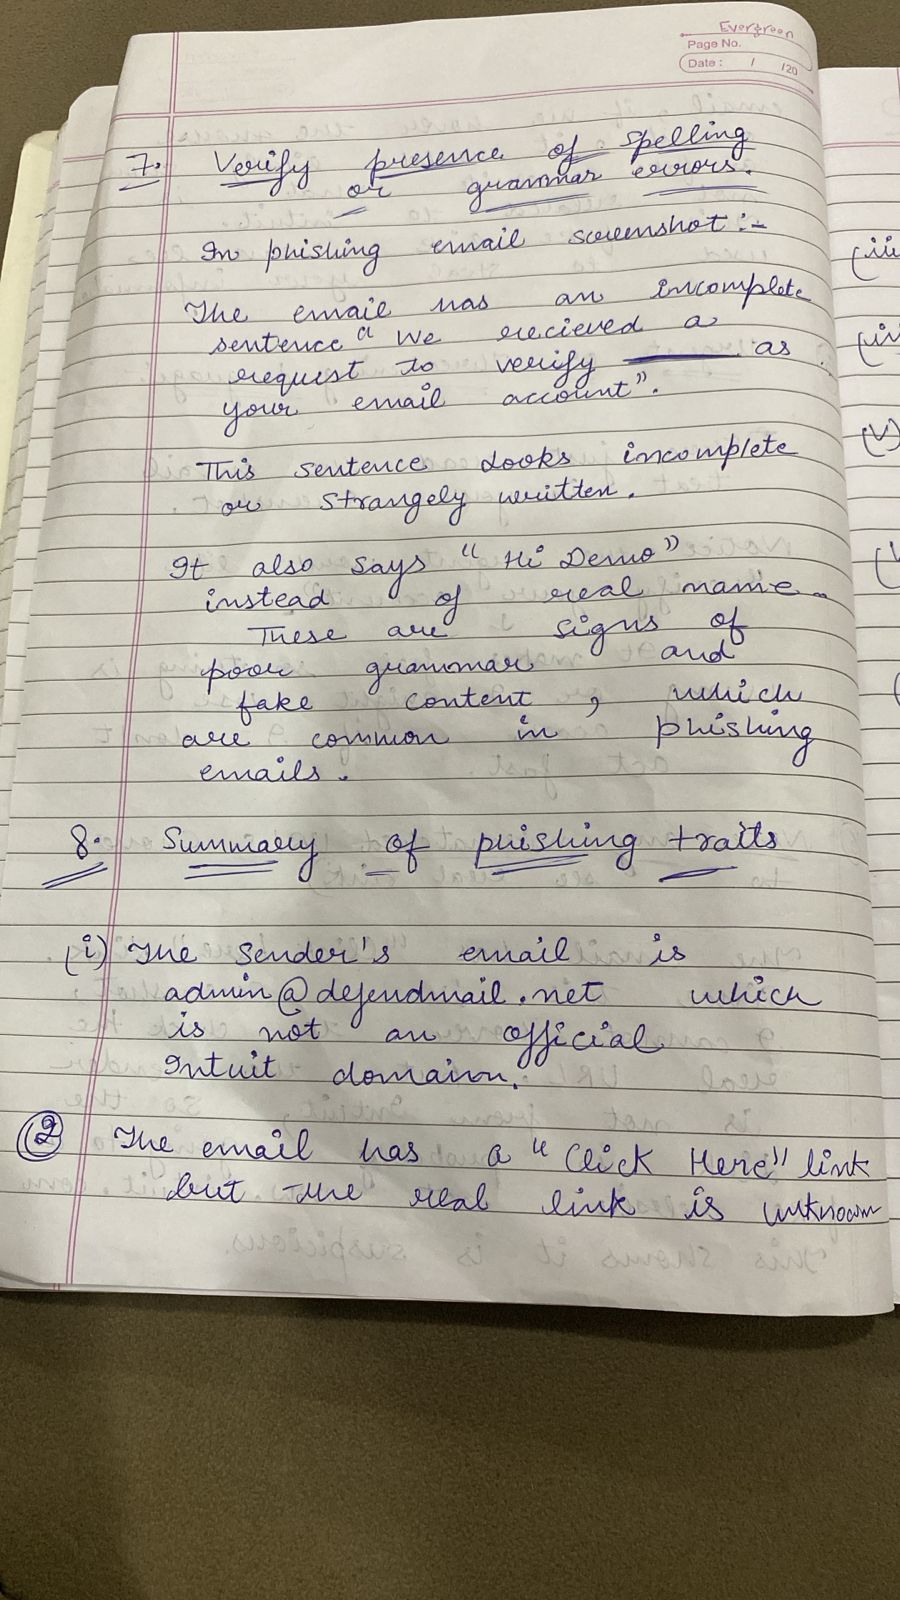 Evergreen
Page No.
Date : / /20
7. Verify presence of spelling
or grammar errors.
In phishing email screenshot :-
The email has an incomplete
sentence "We recieved a
request to verify ———— as
your email account".
This sentence looks incomplete
or strangely written.
It also says "Hi Demo"
instead of real name.
These are signs of
poor grammar and
fake content, which
are common in phishing
emails.
8. Summary of phishing traits
(i) The Sender's email is
admin@defendmail.net which
is not an official
Intuit domain.
② The email has a "Click Here" link
but the real link is unknown
(iii
(iv
(v)